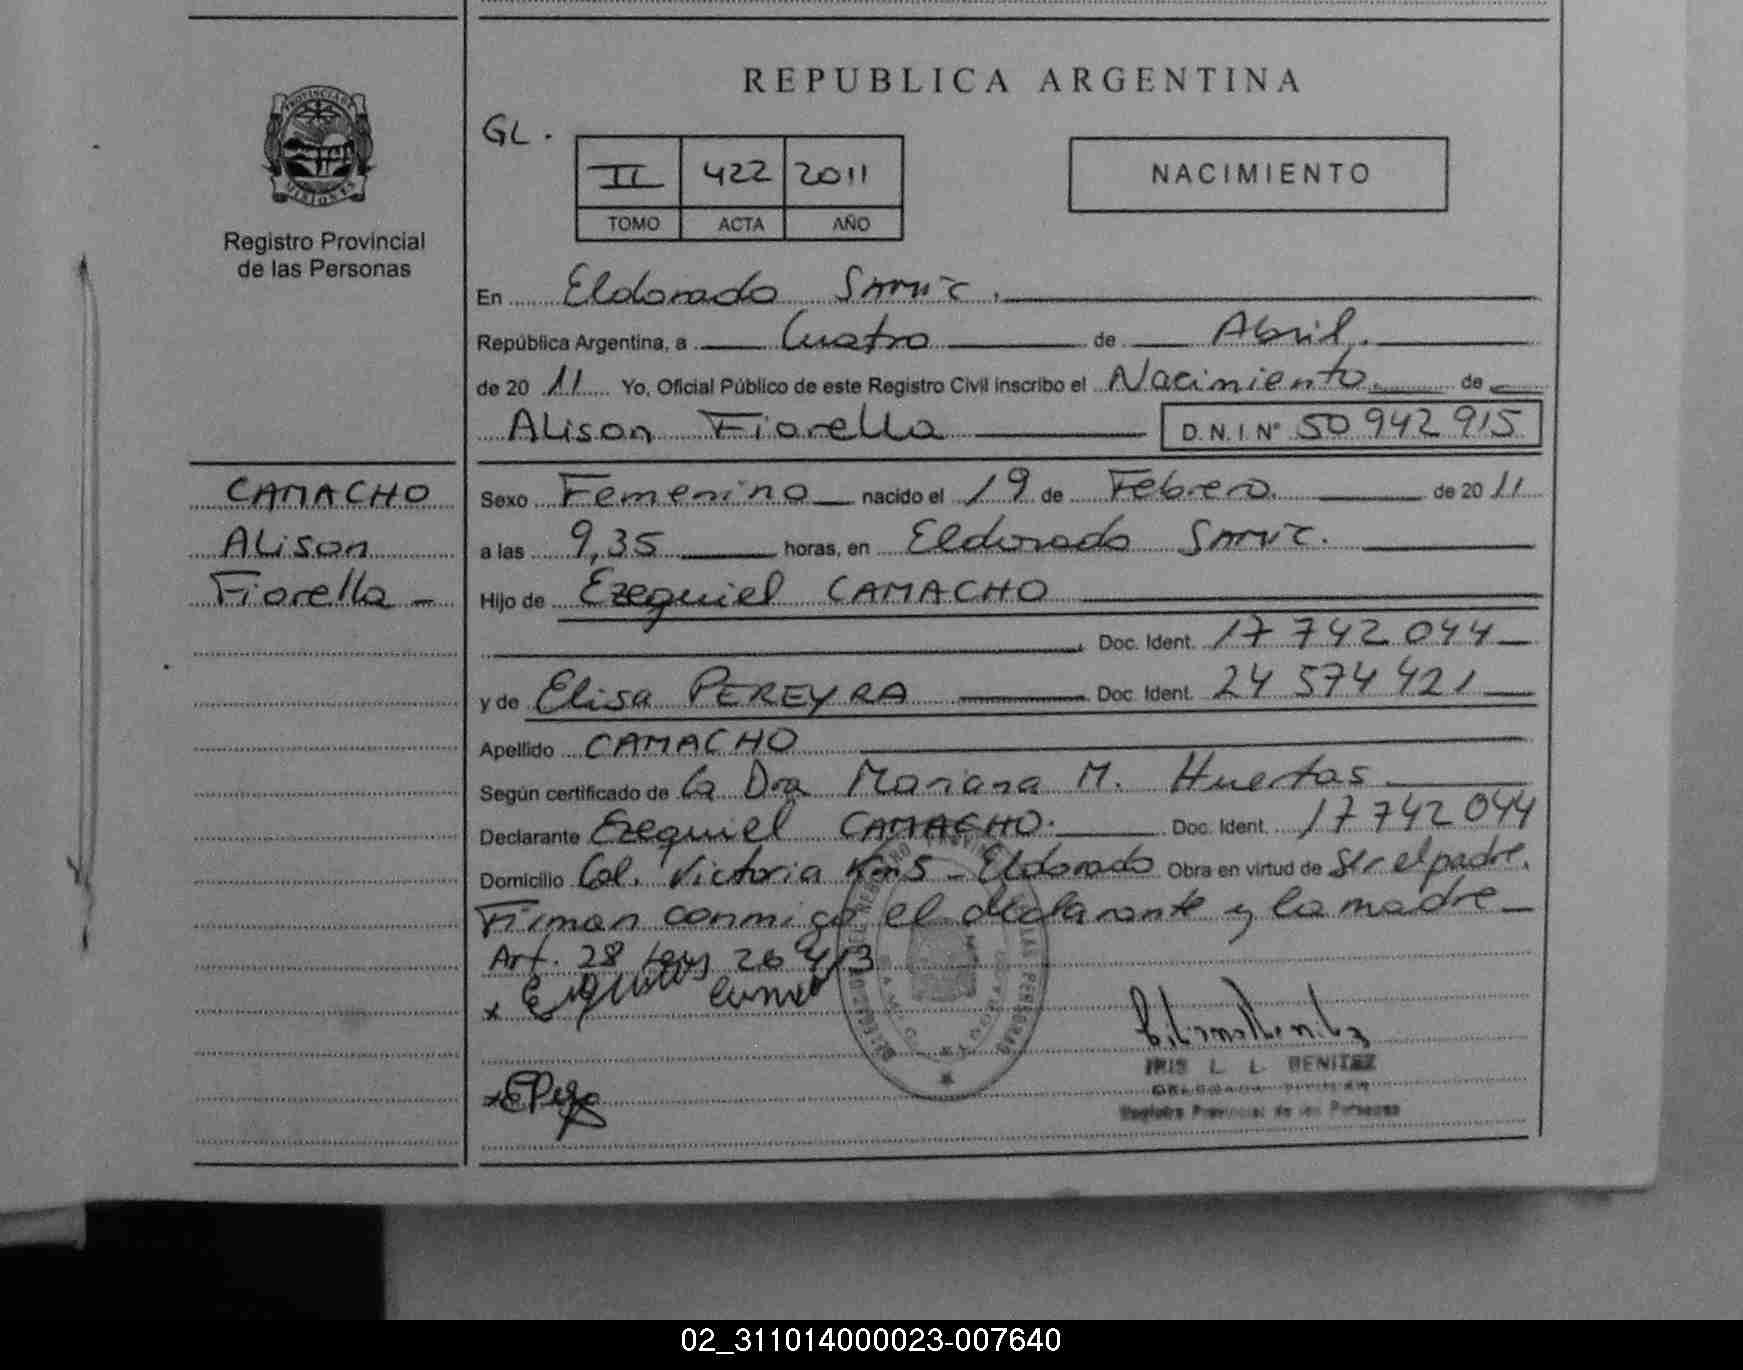 REPUBLICA ARGENTINA
GL.
II 422 2011
TOMO ACTA AÑO
NACIMIENTO
PROVINCIA DE MISIONES
Registro Provincial
de las Personas
En Eldorado
República Argentina, a Cuatro de Abril.
de 20 11 Yo, Oficial Público de este Registro Civil inscribo el Nacimiento de
Alison Fiorella D.N.I. N° 50 942 915
CAMACHO
Alison
Fiorella -
Sexo Femenino nacido el 19 de Febrero. de 20 11
a las 9,35 horas, en Eldorado
Hijo de Ezequiel CAMACHO
Doc. Ident. 17 742 044
y de Elisa PEREYRA Doc. Ident. 24 574 421
Apellido CAMACHO
Según certificado de la Dra Mariana M. Huertas
Declarante Ezequiel CAMACHO. Doc. Ident. 17 742 044
Domicilio Col. Victoria Km5 - Eldorado Obra en virtud de Ser el padre.
Firman conmigo el declarante y la madre -
Art. 28 Ley 26 413
IRIS L. L. BENITEZ
Registro Provincial de las Personas
02_311014000023-007640